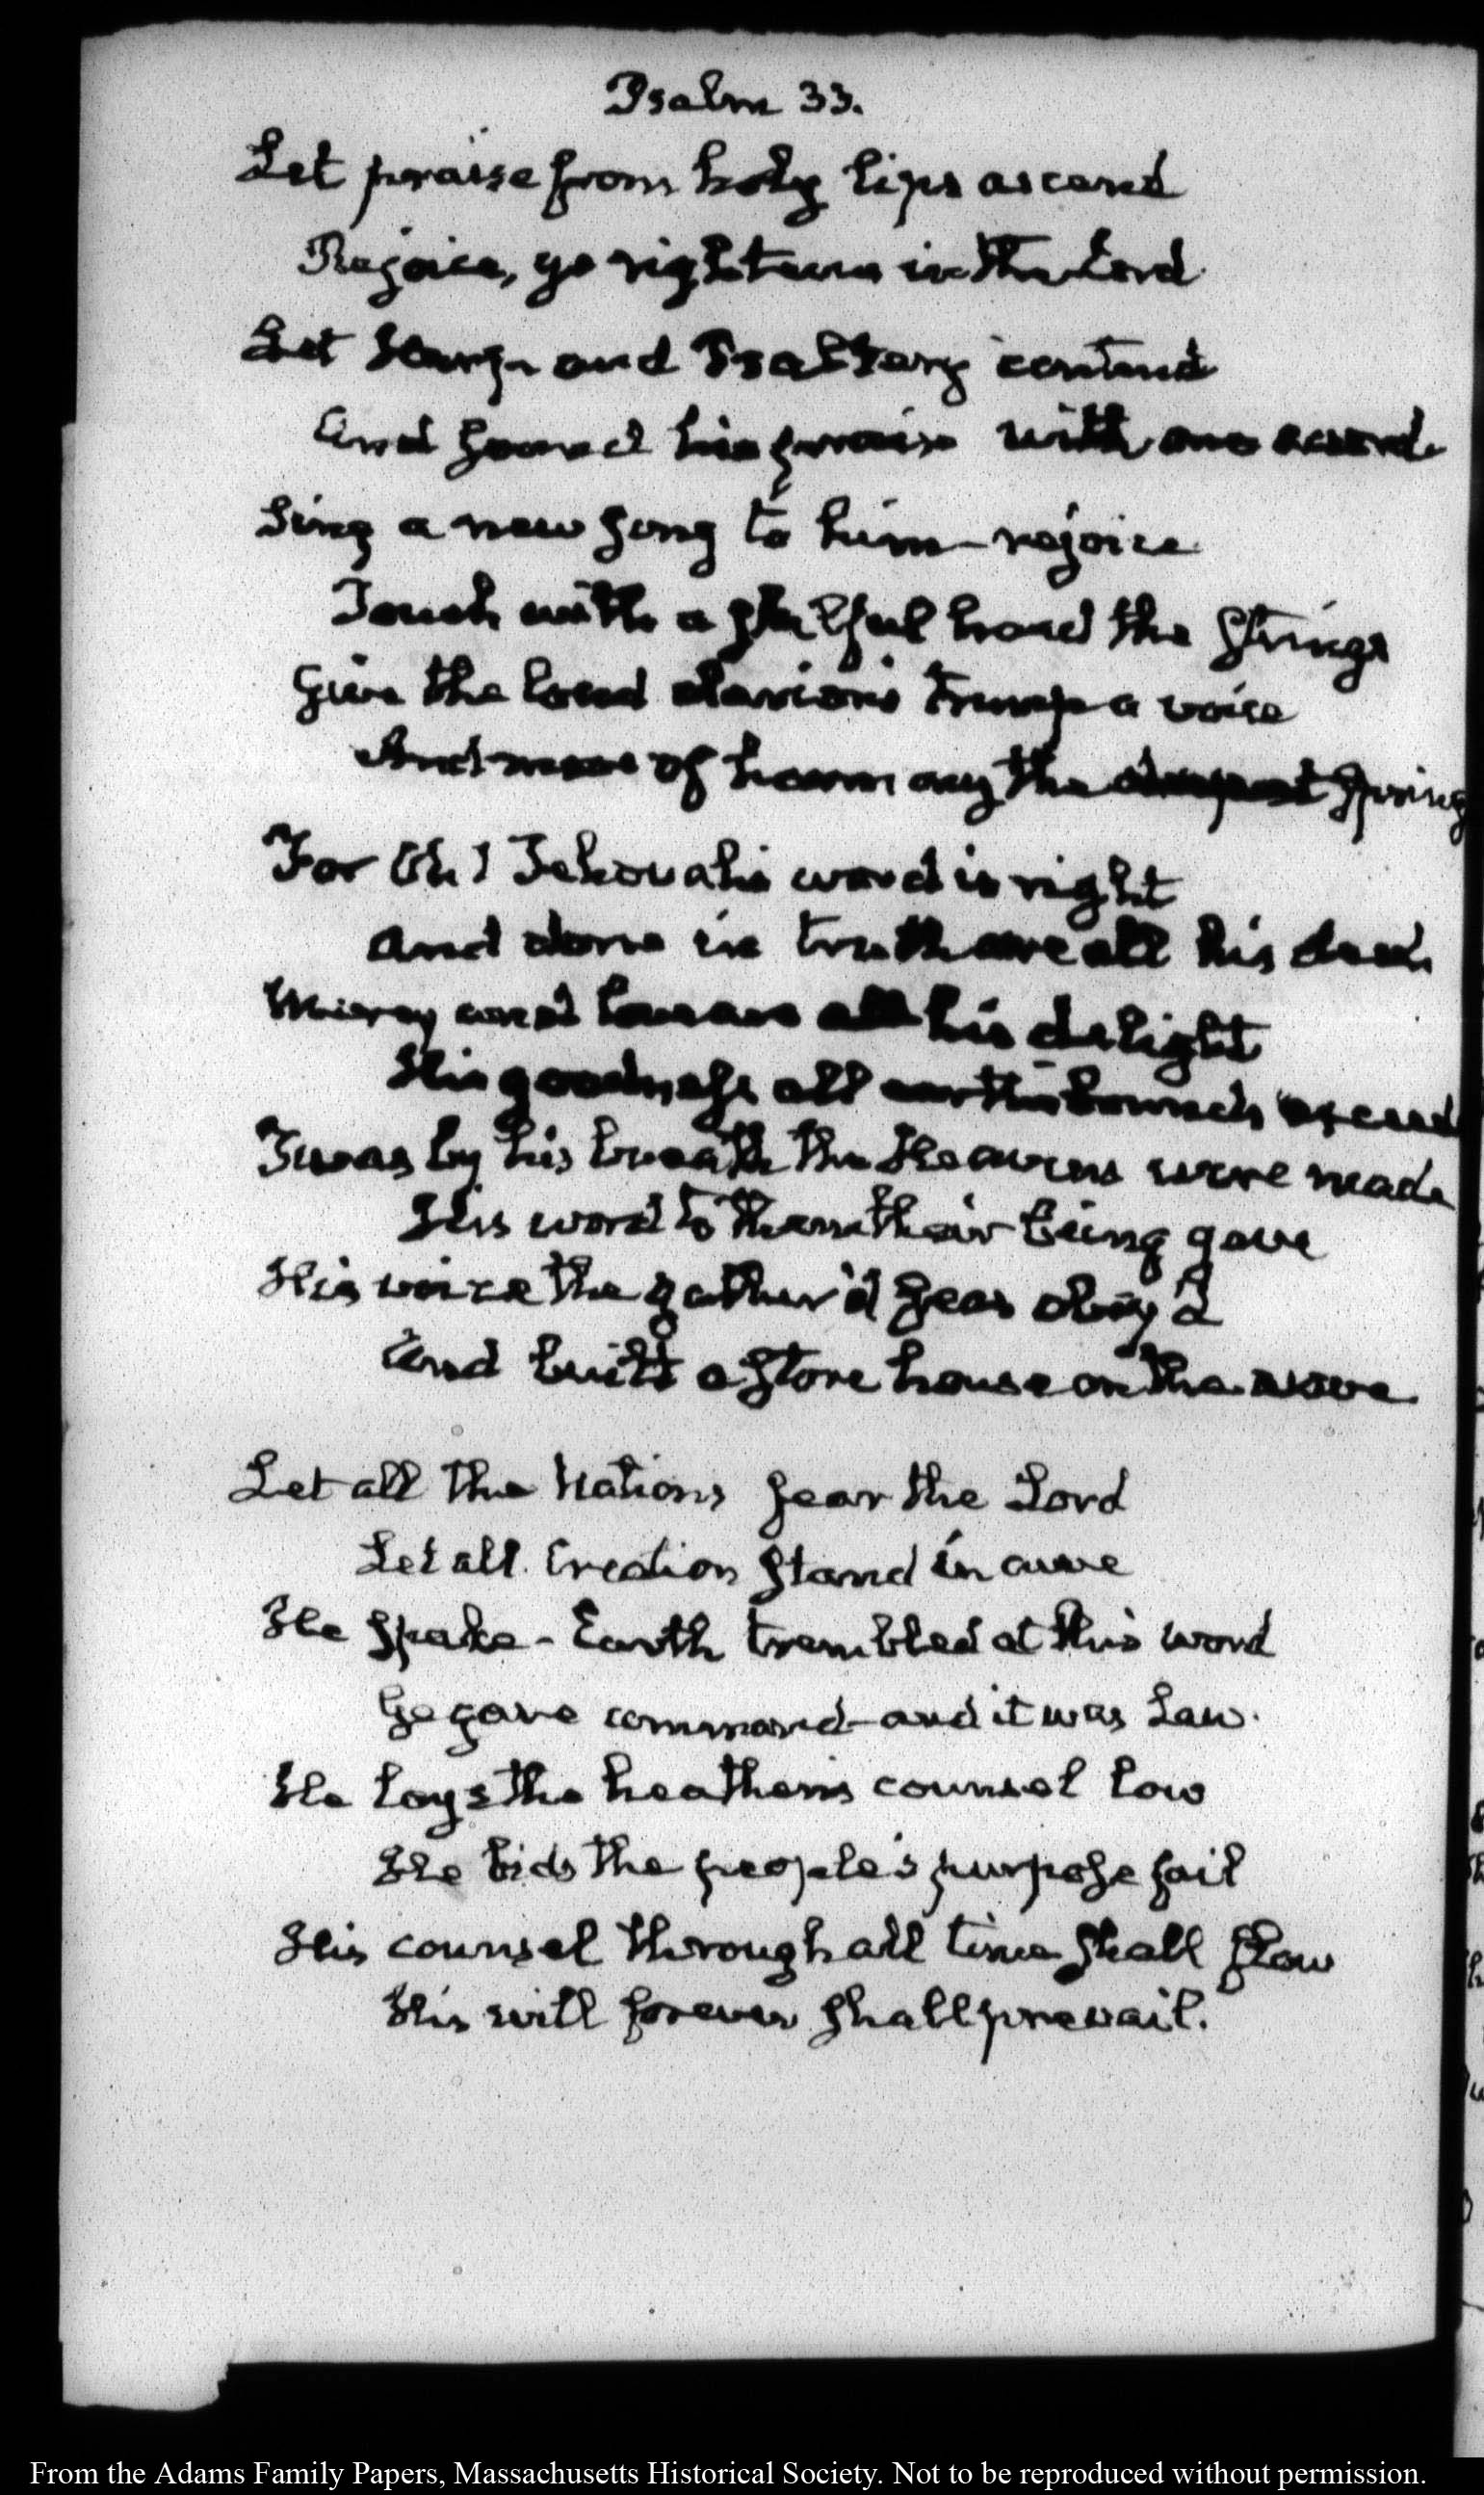 Psalm 33.
Let praise from holy lips ascend
Rejoice, ye righteous in the Lord.
Let Harp and Psaltery contend
And sound his praise with one accord.
Sing a new song to him - rejoice
Touch with a skilful hand the strings
Give the loud clarion's trump a voice
of harmony the deepest spring
For Oh! Jehovah's word is right
And done in truth are all his deeds
Mercy and love are all his delight
His goodness all earth's bounds exceed
Twas by his breath the Heavens were made
His word to them their being gave
His voice the gather'd seas obey'd
And built a store house on the wave.
Let all the Nations fear the Lord
Let all Creation stand in awe
He spake - Earth trembled at his word
He gave command - and it was Law.
He lays the heathen's counsel low
He bids the people's purpose fail
His counsel through all time shall flow
His will forever shall prevail.
From the Adams Family Papers, Massachusetts Historical Society. Not to be reproduced without permission.